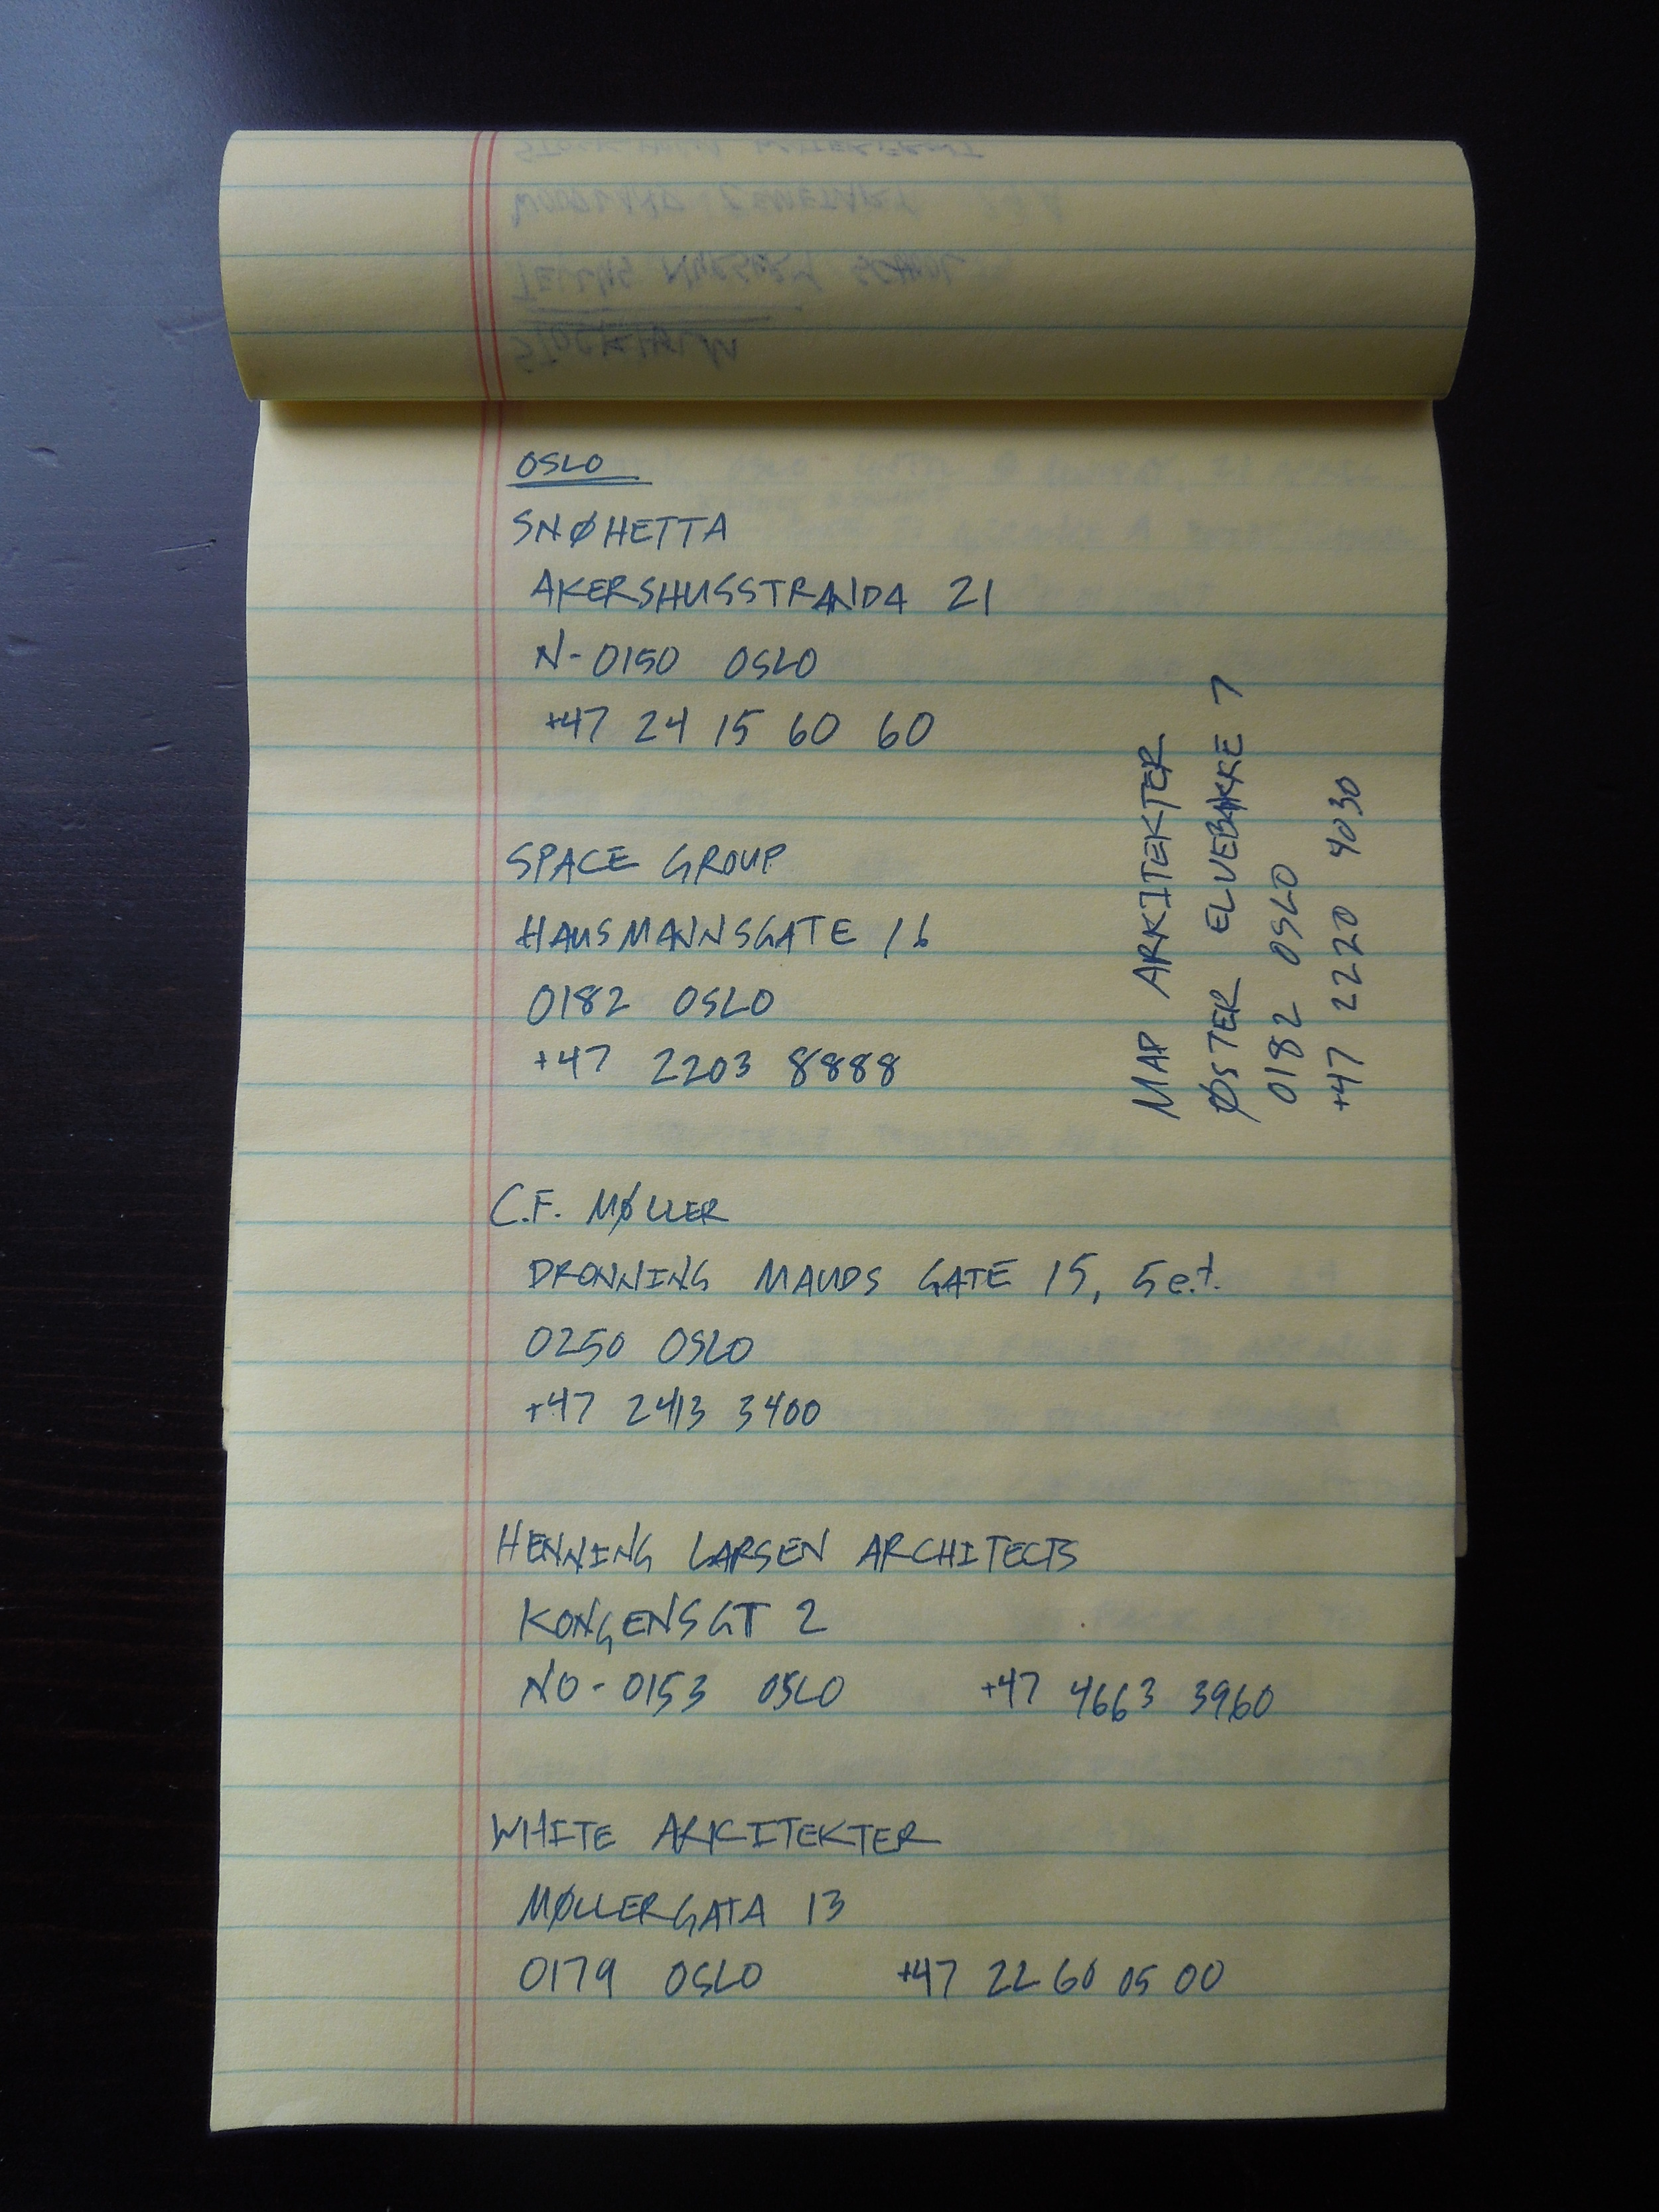 OSLO
SNØHETTA
AKERSHUSSTRANDA 21
N-0150 OSLO
+47 24 15 60 60
SPACE GROUP
HAUSMANNSGATE 16
0182 OSLO
+47 2203 8888
MAP ARKITEKTER
ØSTER ELVEBAKKE 7
0182 OSLO
+47 2220 4030
C.F. MØLLER
DRONNING MAUDS GATE 15, 5 et.
0250 OSLO
+47 2413 3400
HENNING LARSEN ARCHITECTS
KONGENSGT 2
NO-0153 OSLO +47 4663 3960
WHITE ARKITEKTER
MØLLERGATA 13
0179 OSLO +47 22 60 05 00
STOCKHOLM
TELLUS NURSERY SCHOOL
WOODLAND CEMETARY